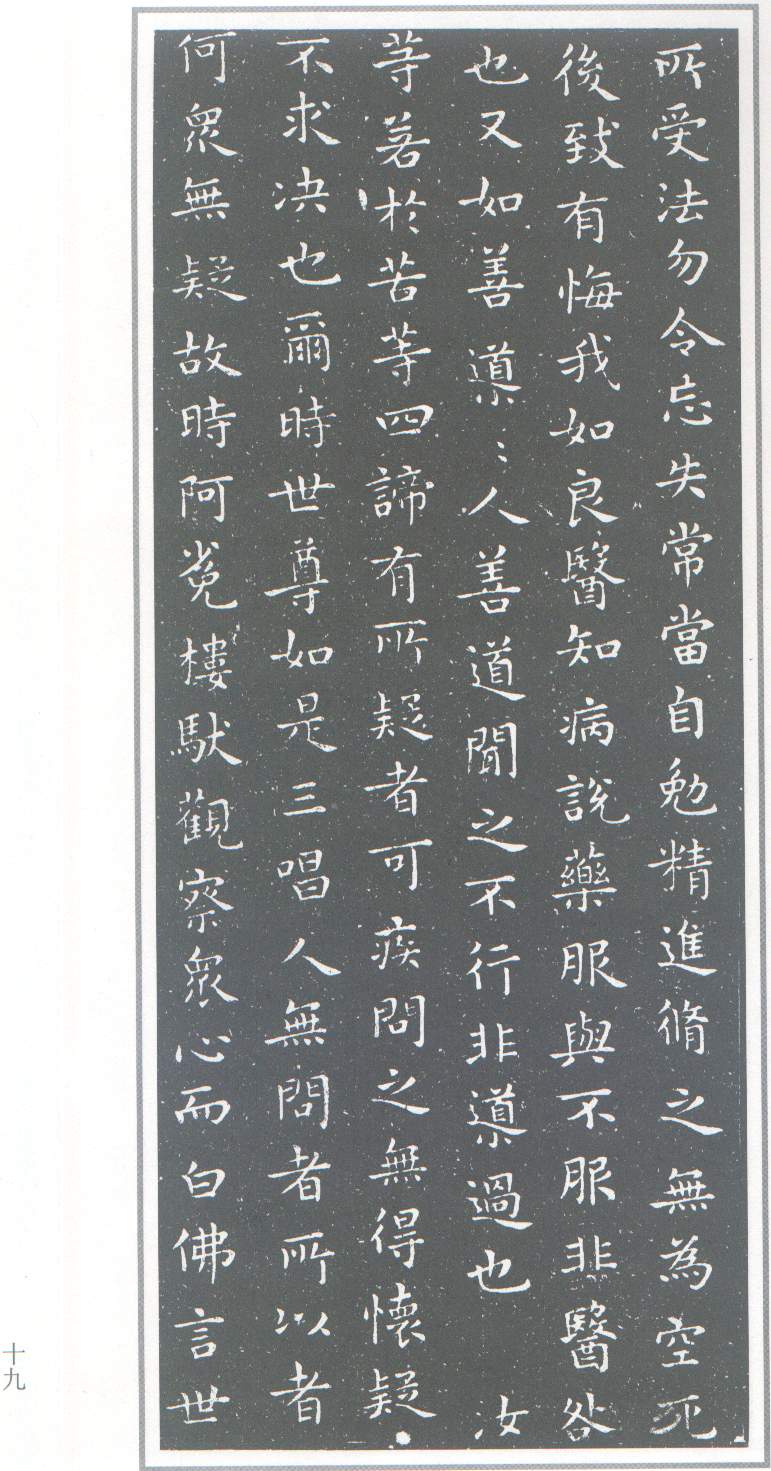 所受法勿令忘失常當自勉精進脩之無為空死
後致有悔我如良醫知病說藥服與不服非醫咎
也又如善導〻人善道聞之不行非導過也　汝
等若於苦等四諦有所疑者可疾問之無得懷疑
不求决也爾時世尊如是三唱人無問者所以者
何衆無疑故時阿㝹樓馱觀察衆心而白佛言世
十九